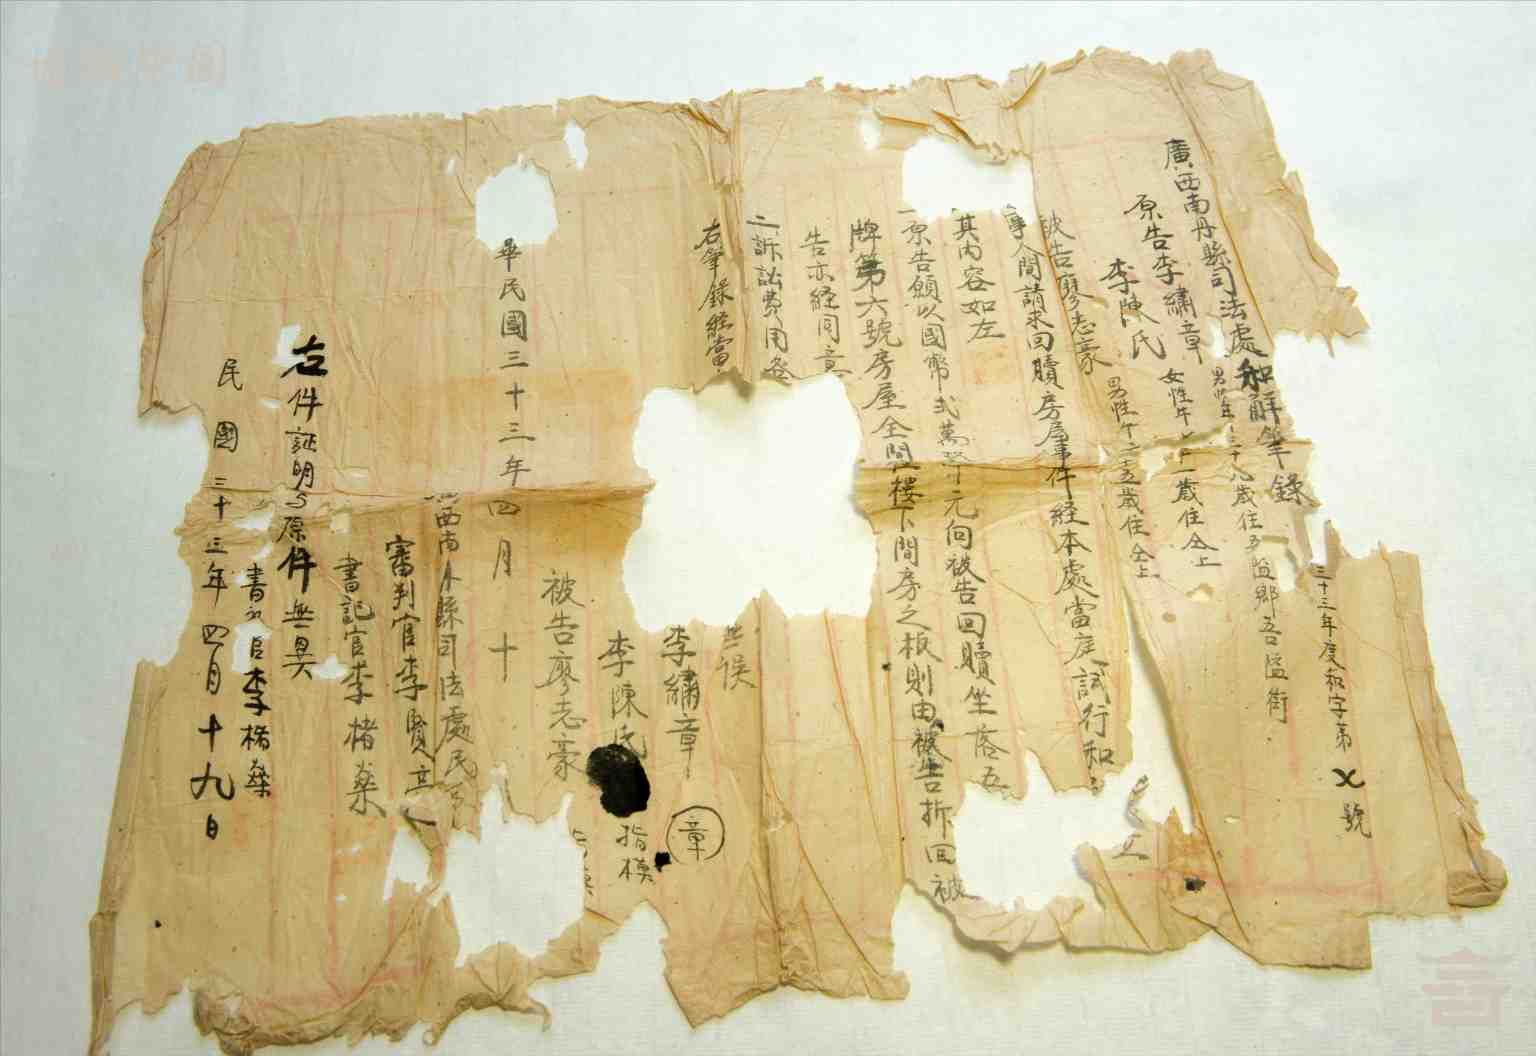 廣西南丹縣司法處和解筆錄
三十三年度和字第 號
原告李繡章 男性年三十八歲住 鄉吾隘街
李陳氏 女性年 十一歲住仝上
被告廖志豪 男性年二五歲住仝上
事人間請求回贖房屋事件経本處當庭試行和
立
其内容如左
一原告願以國幣弍萬 元向被告回贖坐落五
牌第六號房屋全間 樓下間房之板則由被告折回被
告亦経同意
二訴訟費用各
右筆錄経當
無误
李繡章 章
李陳氏 指模
被告廖志豪
華民國三十三年四月十
西南丹縣司法處民
審判官李
書記官李楮燊
右件証明与原件無異
書记官李楮燊
民國三十三年四月十九日